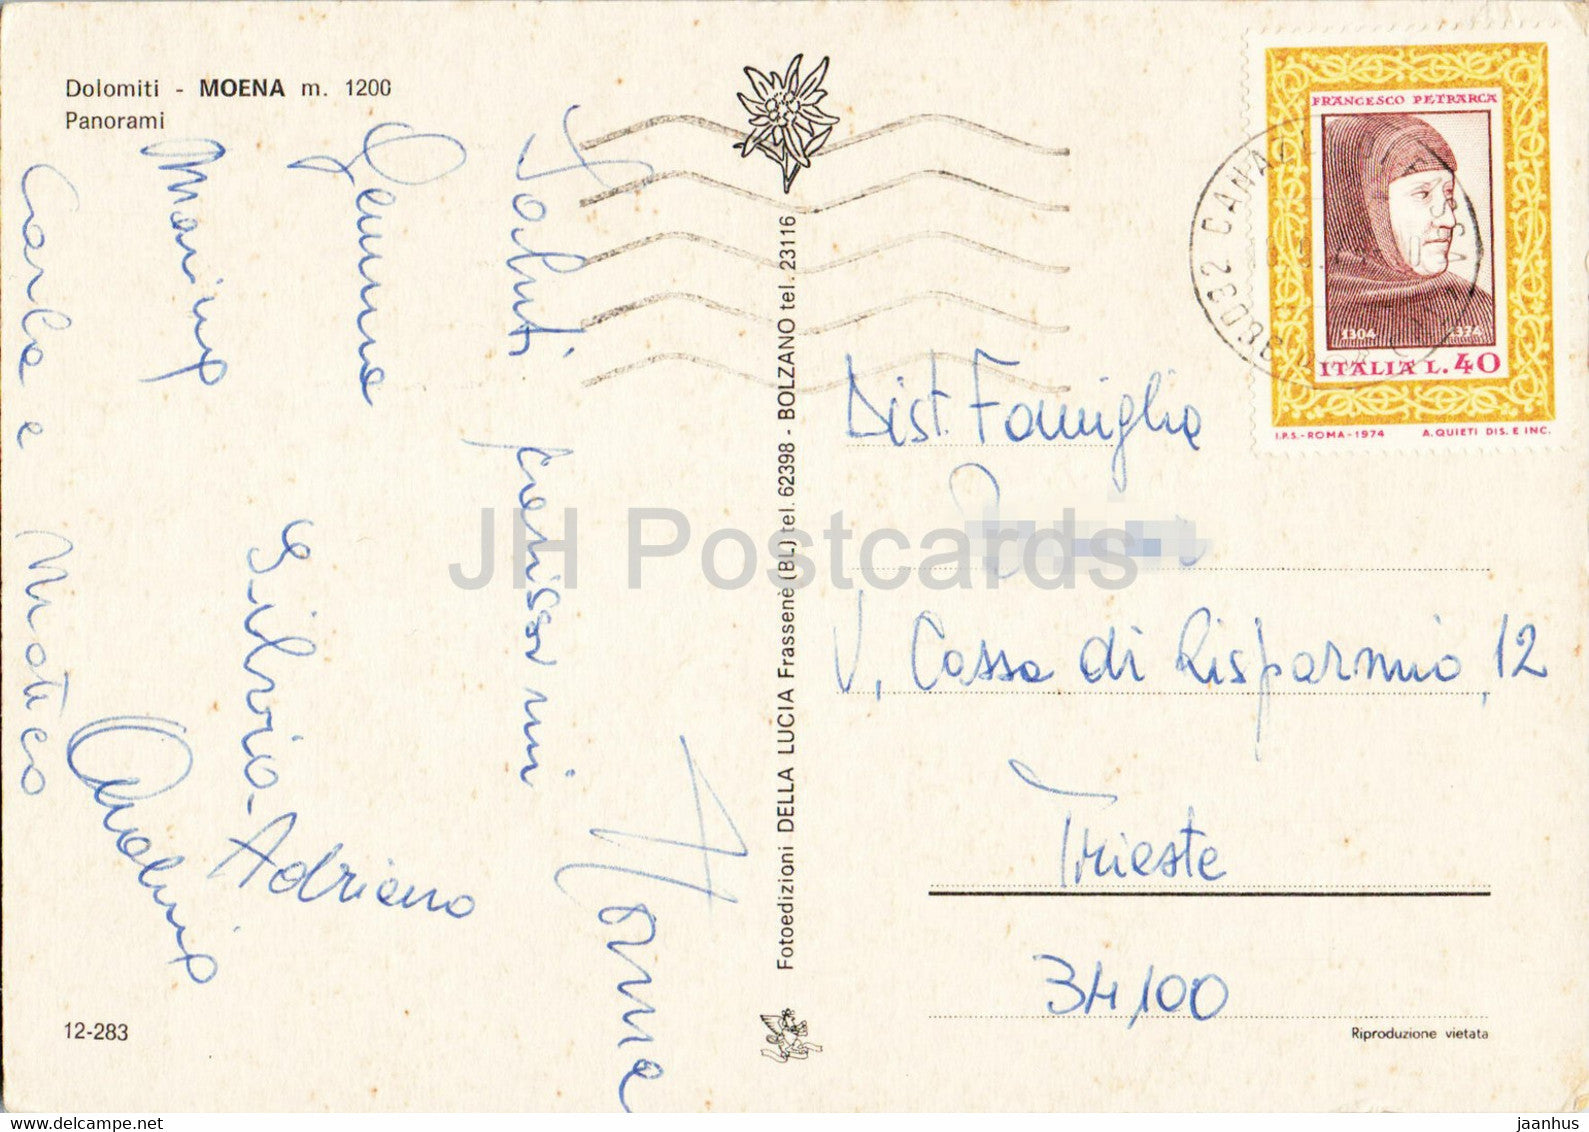 Dolomiti - MOENA m. 1200
Panorami
Saluti carissimi
Gemma
Marina
Carla e
Silvia - Adriano
FRANCESCO PETRARCA
1304 1374
ITALIA L. 40
I.P.S. - ROMA - 1974 A. QUIETI DIS. E INC.
38032 CANAZEI
Dist. Famiglia
V. Cassa di Risparmio, 12
Trieste
34100
Fotoedizioni DELLA LUCIA Frassenè (BL) tel. 62398 - BOLZANO tel. 23116
12-283
Riproduzione vietata
JH Postcards
hippostcard.com/store/jaanhus
jaanhus